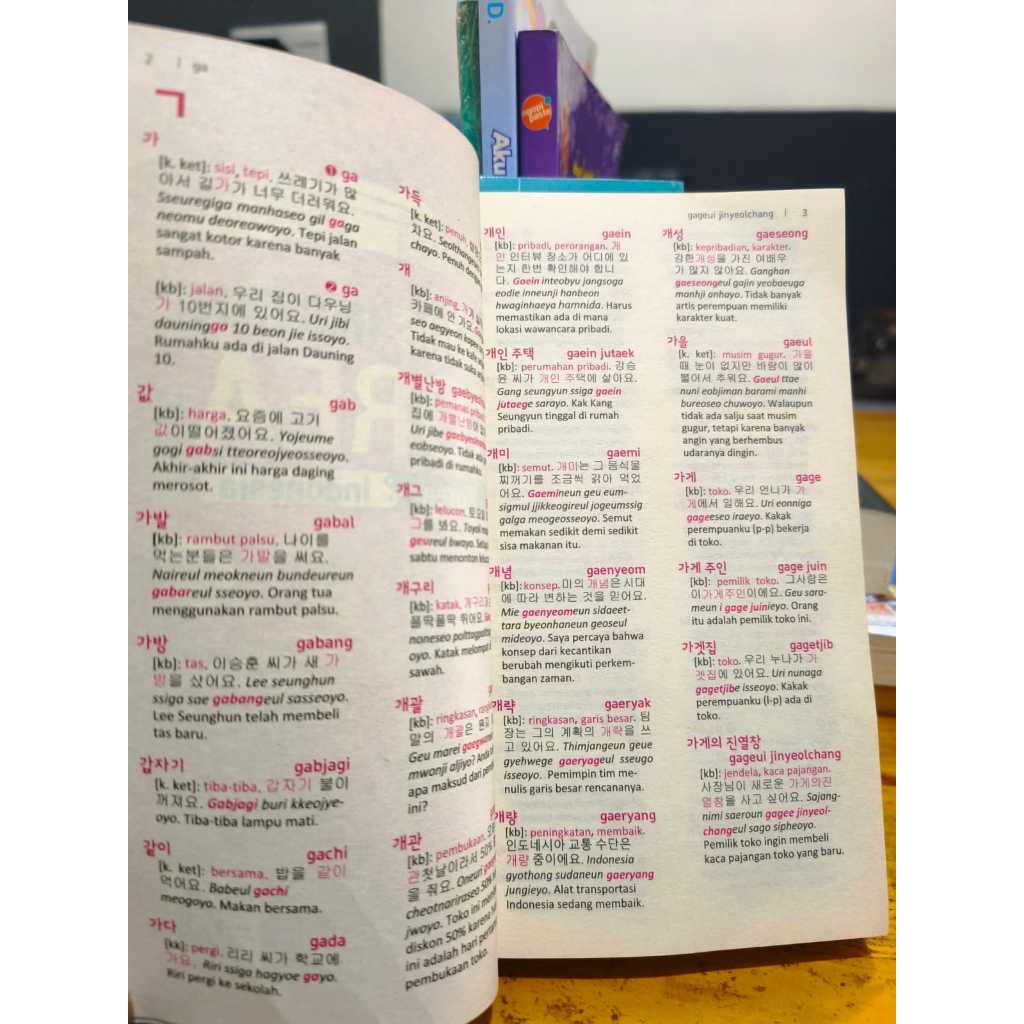 2 | ga
ㄱ
가
❶ ga
[k. ket]: sisi, tepi. 쓰레기가 많
아서 길가가 너무 더러워요.
Sseuregiga manhaseo gil gaga
neomu deoreowoyo. Tepi jalan
sangat kotor karena banyak
sampah.
❷ ga
[kb]: jalan, 우리 집이 다우닝
가 10번지에 있어요. Uri jibi
dauningga 10 beon jie issoyo.
Rumahku ada di jalan Dauning
10.
값
gab
[kb]: harga, 요즘에 고기
값이떨어졌어요. Yojeume
gogi gabsi tteoreojyeosseoyo.
Akhir-akhir ini harga daging
merosot.
가발
gabal
[kb]: rambut palsu, 나이를
먹는분들은 가발을 써요.
Naireul meokneun bundeureun
gabareul sseoyo. Orang tua
menggunakan rambut palsu.
가방
gabang
[kb]: tas, 이승훈 씨가 새 가
방을 샀어요. Lee seunghun
ssiga sae gabangeul sasseoyo.
Lee Seunghun telah membeli
tas baru.
갑자기
gabjagi
[k. ket]: tiba-tiba, 갑자기 불이
꺼져요. Gabjagi buri kkeojye-
oyo. Tiba-tiba lampu mati.
같이
gachi
[k. ket]: bersama, 밥을 같이
먹어요. Babeul gachi
meogoyo. Makan bersama.
가다
gada
[kk]: pergi. 리리 씨가 학교에
가요. Riri ssiga hagyoe gayo.
Riri pergi ke sekolah.
가득
[k. ket]: penuh,
차요.
chayo. Penuh
개
[kb]: anjing,
카페에 안 가요.
seo aegyeon
Tidak mau ke
karena tidak suka
개별난방
[kb]: pemanas
집에 개별난방이
Uri jibe
eobseoyo. Tidak
pribadi di rumah
개그
[kb]: lelucon, 토요일
그를 봐요.
geureul bwayo.
sabtu menonton
개구리
[kb]: katak, 개구리가
폴딱폴딱 뛰어요.
noneseo
oyo. Katak melompat
sawah.
개괄
[kb]: ringkasan,
말의 개괄은 뭔지
Geu marei
mwonji aljiyo? Anda
apa maksud dari
ini?
개관
[kb]: pembukaan.
관첫날이라서 50%
을 줘요. Oneun
cheotnariraseo 50%
jwoyo. Toko ini
diskon 50% karena
ini adalah hari
pembukaan toko.
gageui jinyeolchang | 3
개인 gaein
[kb]: pribadi, perorangan. 개
인 인터뷰 장소가 어디에 있
는지 한번 확인해야 합니
다. Gaein inteobyu jangsoga
eodie inneunji hanbeon
hwaginhaeya hamnida. Harus
memastikan ada di mana
lokasi wawancara pribadi.
개인 주택 gaein jutaek
[kb]: perumahan pribadi. 강승
윤 씨가 개인 주택에 살아요.
Gang seungyun ssiga gaein
jutaege sarayo. Kak Kang
Seungyun tinggal di rumah
pribadi.
개미 gaemi
[kb]: semut. 개미는 그 음식물
찌꺼기를 조금씩 갉아 먹었
어요. Gaemineun geu eum-
sigmul jjikkeogireul jogeumssig
galga meogeosseoyo. Semut
memakan sedikit demi sedikit
sisa makanan itu.
개념 gaenyeom
[kb]: konsep. 미의 개념은 시대
에 따라 변하는 것을 믿어요.
Mie gaenyeomeun sidaeet-
tara byeonhaneun geoseul
mideoyo. Saya percaya bahwa
konsep dari kecantikan
berubah mengikuti perkem-
bangan zaman.
개략 gaeryak
[kb]: ringkasan, garis besar. 팀
장는 그의 계획의 개략을 쓰
고 있어요. Thimjangeun geue
gyehwege gaeryageul sseugo
isseoyo. Pemimpin tim me-
nulis garis besar rencananya.
개량 gaeryang
[kb]: peningkatan, membaik.
인도네시아 교통 수단은
개량 중이에요. Indonesia
gyothong sudaneun gaeryang
jungieyo. Alat transportasi
Indonesia sedang membaik.
개성 gaeseong
[kb]: kepribadian, karakter.
강한개성을 가진 여배우
가 많지 않아요. Ganghan
gaeseongeul gajin yeobaeuga
manhji anhayo. Tidak banyak
artis perempuan memiliki
karakter kuat.
가을 gaeul
[k. ket]: musim gugur. 가을
때 눈이 없지만 바람이 많이
불어서 추워요. Gaeul ttae
nuni eobjiman barami manhi
bureoseo chuwoyo. Walaupun
tidak ada salju saat musim
gugur, tetapi karena banyak
angin yang berhembus
udaranya dingin.
가게 gage
[kb]: toko. 우리 언니가 가
게에서 일해요. Uri eonniga
gageeseo iraeyo. Kakak
perempuanku (p-p) bekerja
di toko.
가게 주인 gage juin
[kb]: pemilik toko. 그사람은
이가게주인이에요. Geu sara-
meun i gage juinieyo. Orang
itu adalah pemilik toko ini.
가겟집 gagetjib
[kb]: toko. 우리 누나가 가
겟집에 있어요. Uri nunaga
gagetjibe isseoyo. Kakak
perempuanku (l-p) ada di
toko.
가게의 진열창
gageui jinyeolchang
[kb]: jendela, kaca pajangan.
사장님이 새로운 가게의진
열창을 사고 싶어요. Sajang-
nimi saeroun gagee jinyeol-
changeul sago sipheoyo.
Pemilik toko ingin membeli
kaca pajangan toko yang baru.
D.
Aku